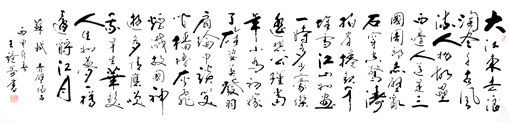 大江東去浪
淘盡千古風
流人物故壘
西邊人道是三
國周郎赤壁亂
石穿空驚濤
拍岸捲起千
堆雪江山如畫
一時多少豪傑
遙想公瑾當
年小喬初嫁
了雄姿英發羽
扇綸巾談笑
間檣櫓灰飛
煙滅故國神
遊多情應笑
我早生華髮
人生如夢一樽
還酹江月
蘇軾赤壁懷古
丙申年
王書